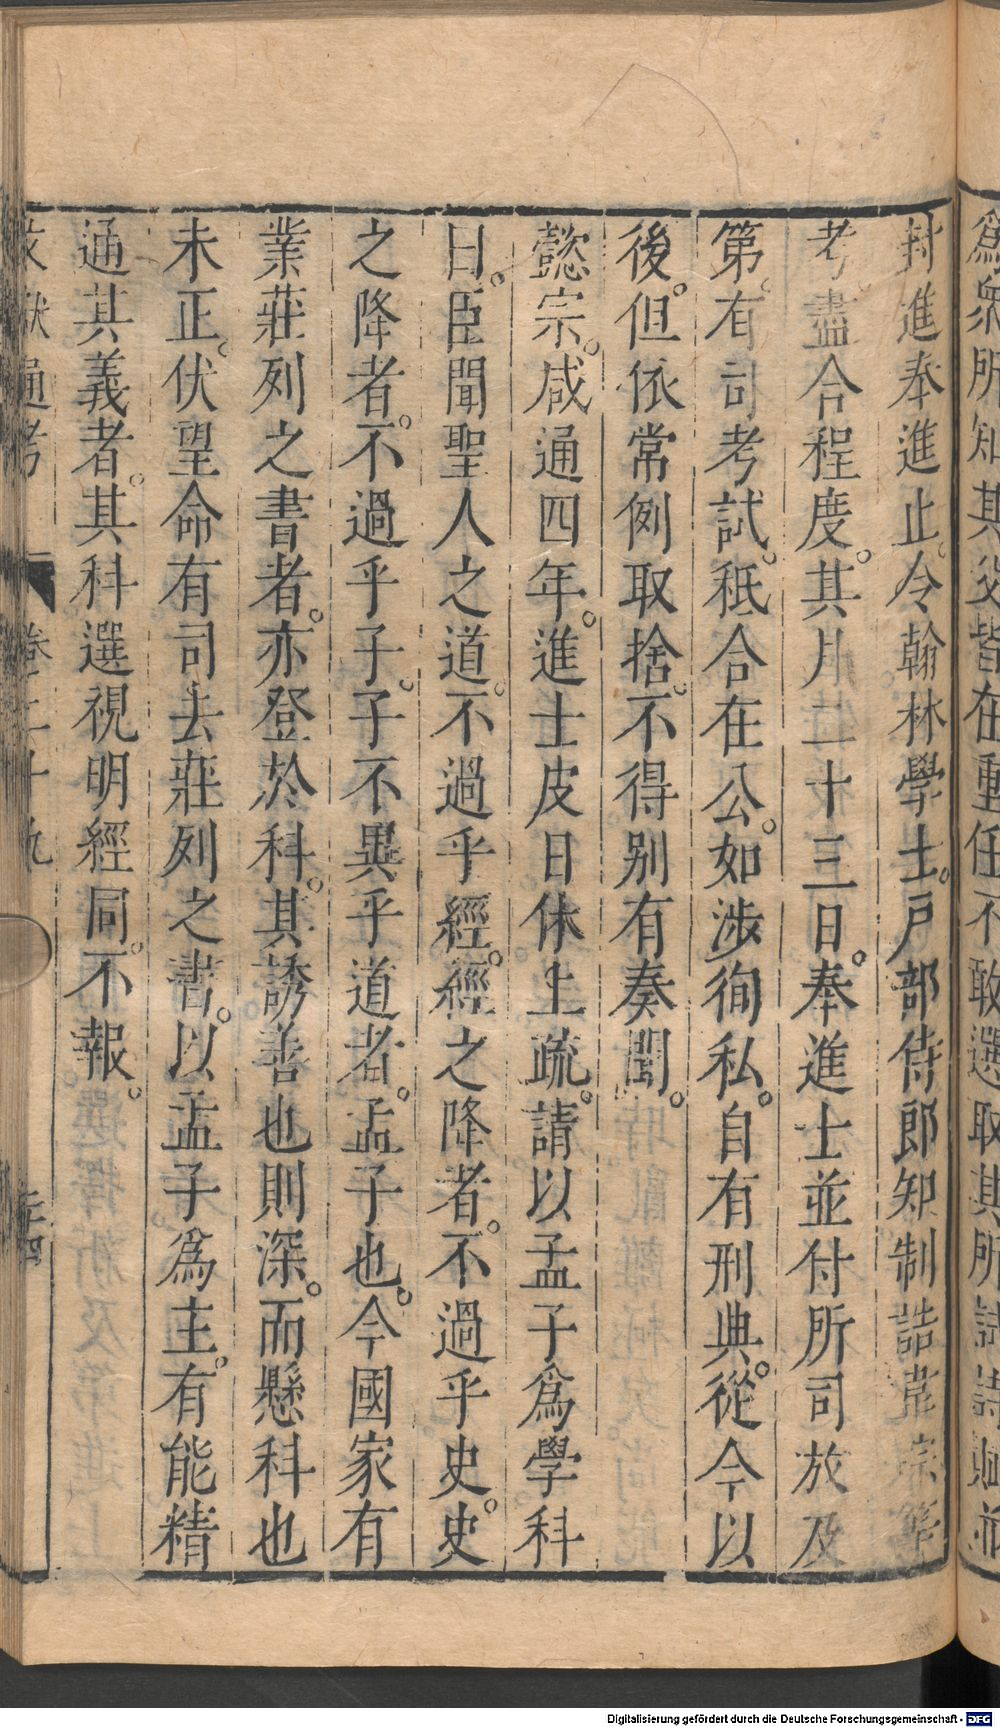 爲衆所知其父皆在重任不敢選取其所試詩賦並
封進奉進止令翰林學士戸部侍郎知制誥韋琮等
考盡合程度其月二十三日奉進士並付所司放及
第有司考試秖合在公如涉徇私自有刑典從今以
後但依常例取捨不得别有奏聞
懿宗咸通四年進士皮日休上疏請以孟子爲學科
曰臣聞聖人之道不過乎經經之降者不過乎史史
之降者不過乎子子不異乎道者孟子也今國家有
業莊列之書者亦登於科其誘善也則深而懸科也
未正伏望命有司去莊列之書以孟子爲主有能精
通其義者其科選視明經同不報
文獻通考 卷二十九 三十四
Digitalisierung gefördert durch die Deutsche Forschungsgemeinschaft - DFG